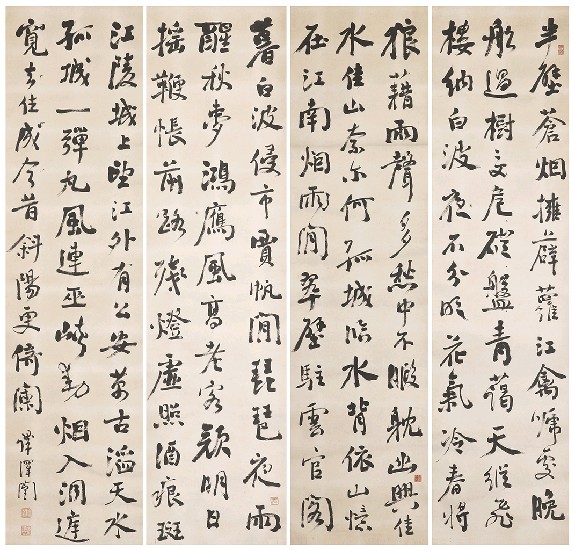 半壁蒼烟擁薜蘿江禽啼處晚
船過樹文危磴盤青藹天縱飛
樓納白波夜不分明花氣冷春將
狼藉雨聲多愁中不暇耽幽興佳
水佳山奈爾何孤城臨水背依山憶
在江南烟雨間翠壁駐雲官閣
暮白波侵市賈帆閒琵琶夜雨
醒秋夢鴻鷹風高老客顏明日
搖鞭悵前路殘燈虛照酒痕斑
江陵城上望江外有公安萬古滔天水
孤城一彈丸風連巫峽動烟入洞庭
寬去住成今昔斜陽更倚闌
譚澤闓